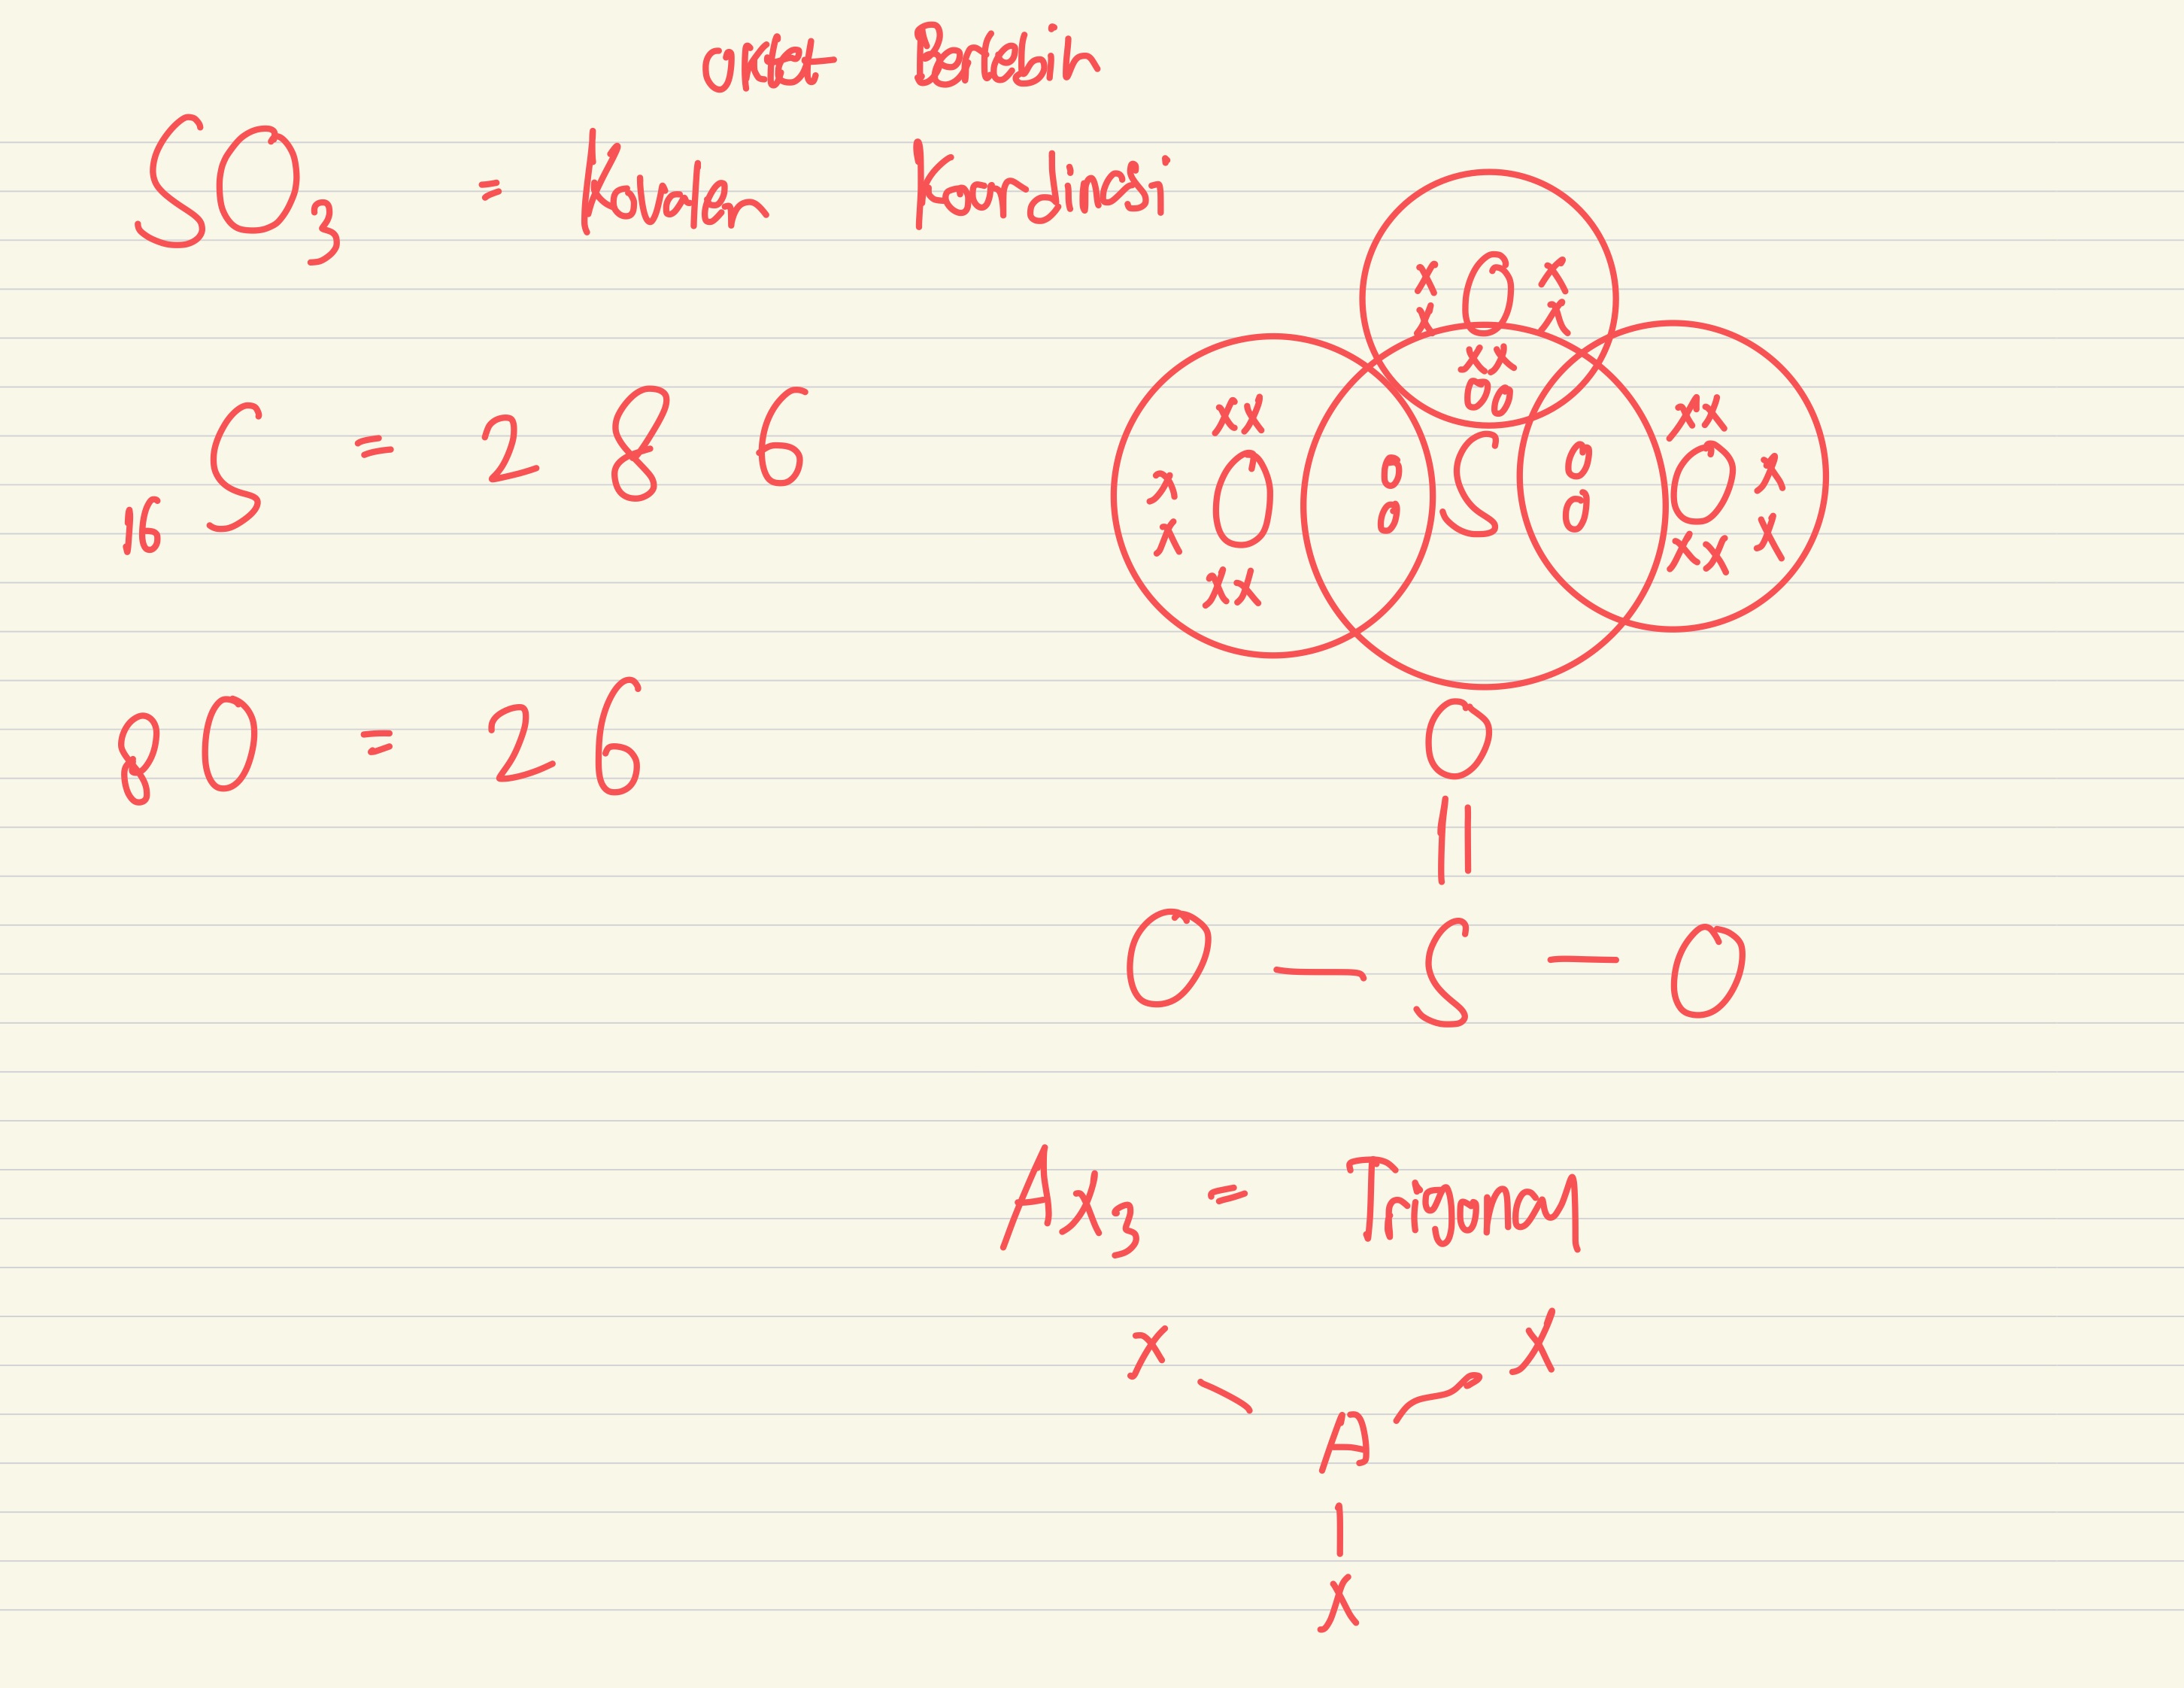 Bersih
SO3 = Kovalen Koordinasi
16 S = 2 8 6
8 O = 2 6
x O x
x x
xx
oo
xx xx
x O o S o O x
x o o x
xx xx
O
||
O — S — O
AX3 = Trigonal
x x
A
|
x